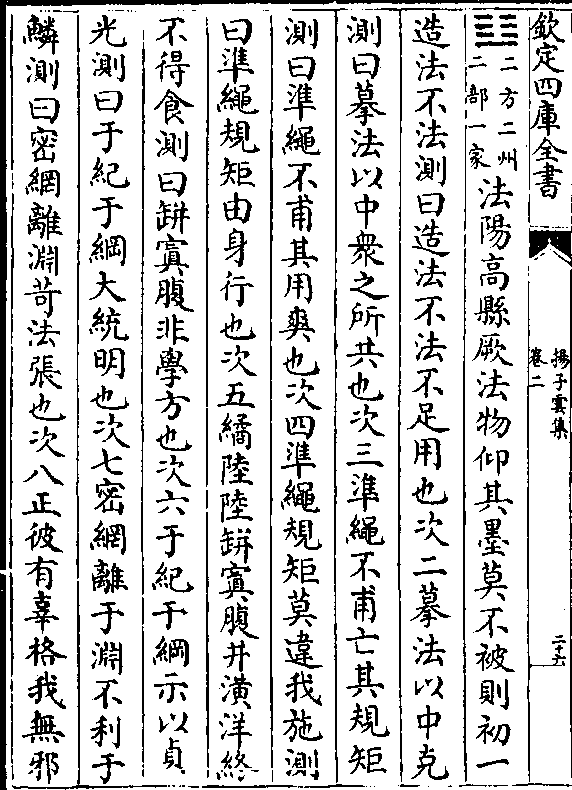 欽定四庫全書
揚子雲集
卷二
二十六
二方二州
二部一家
法陽高縣厥法物仰其墨莫不被則初一
造法不法測曰造法不法不足用也次二摹法以中克
測曰摹法以中衆之所共也次三準繩不甫亡其規矩
測曰準繩不甫其用爽也次四準繩規矩莫違我施測
曰準繩規矩由身行也次五繘陸陸缾寘腹井潢洋終
不得食測曰缾寘腹非學方也次六于紀于綱示以貞
光測曰于紀于綱大統明也次七密網離于淵不利于
鱗測曰密網離淵苛法張也次八正彼有辜格我無邪